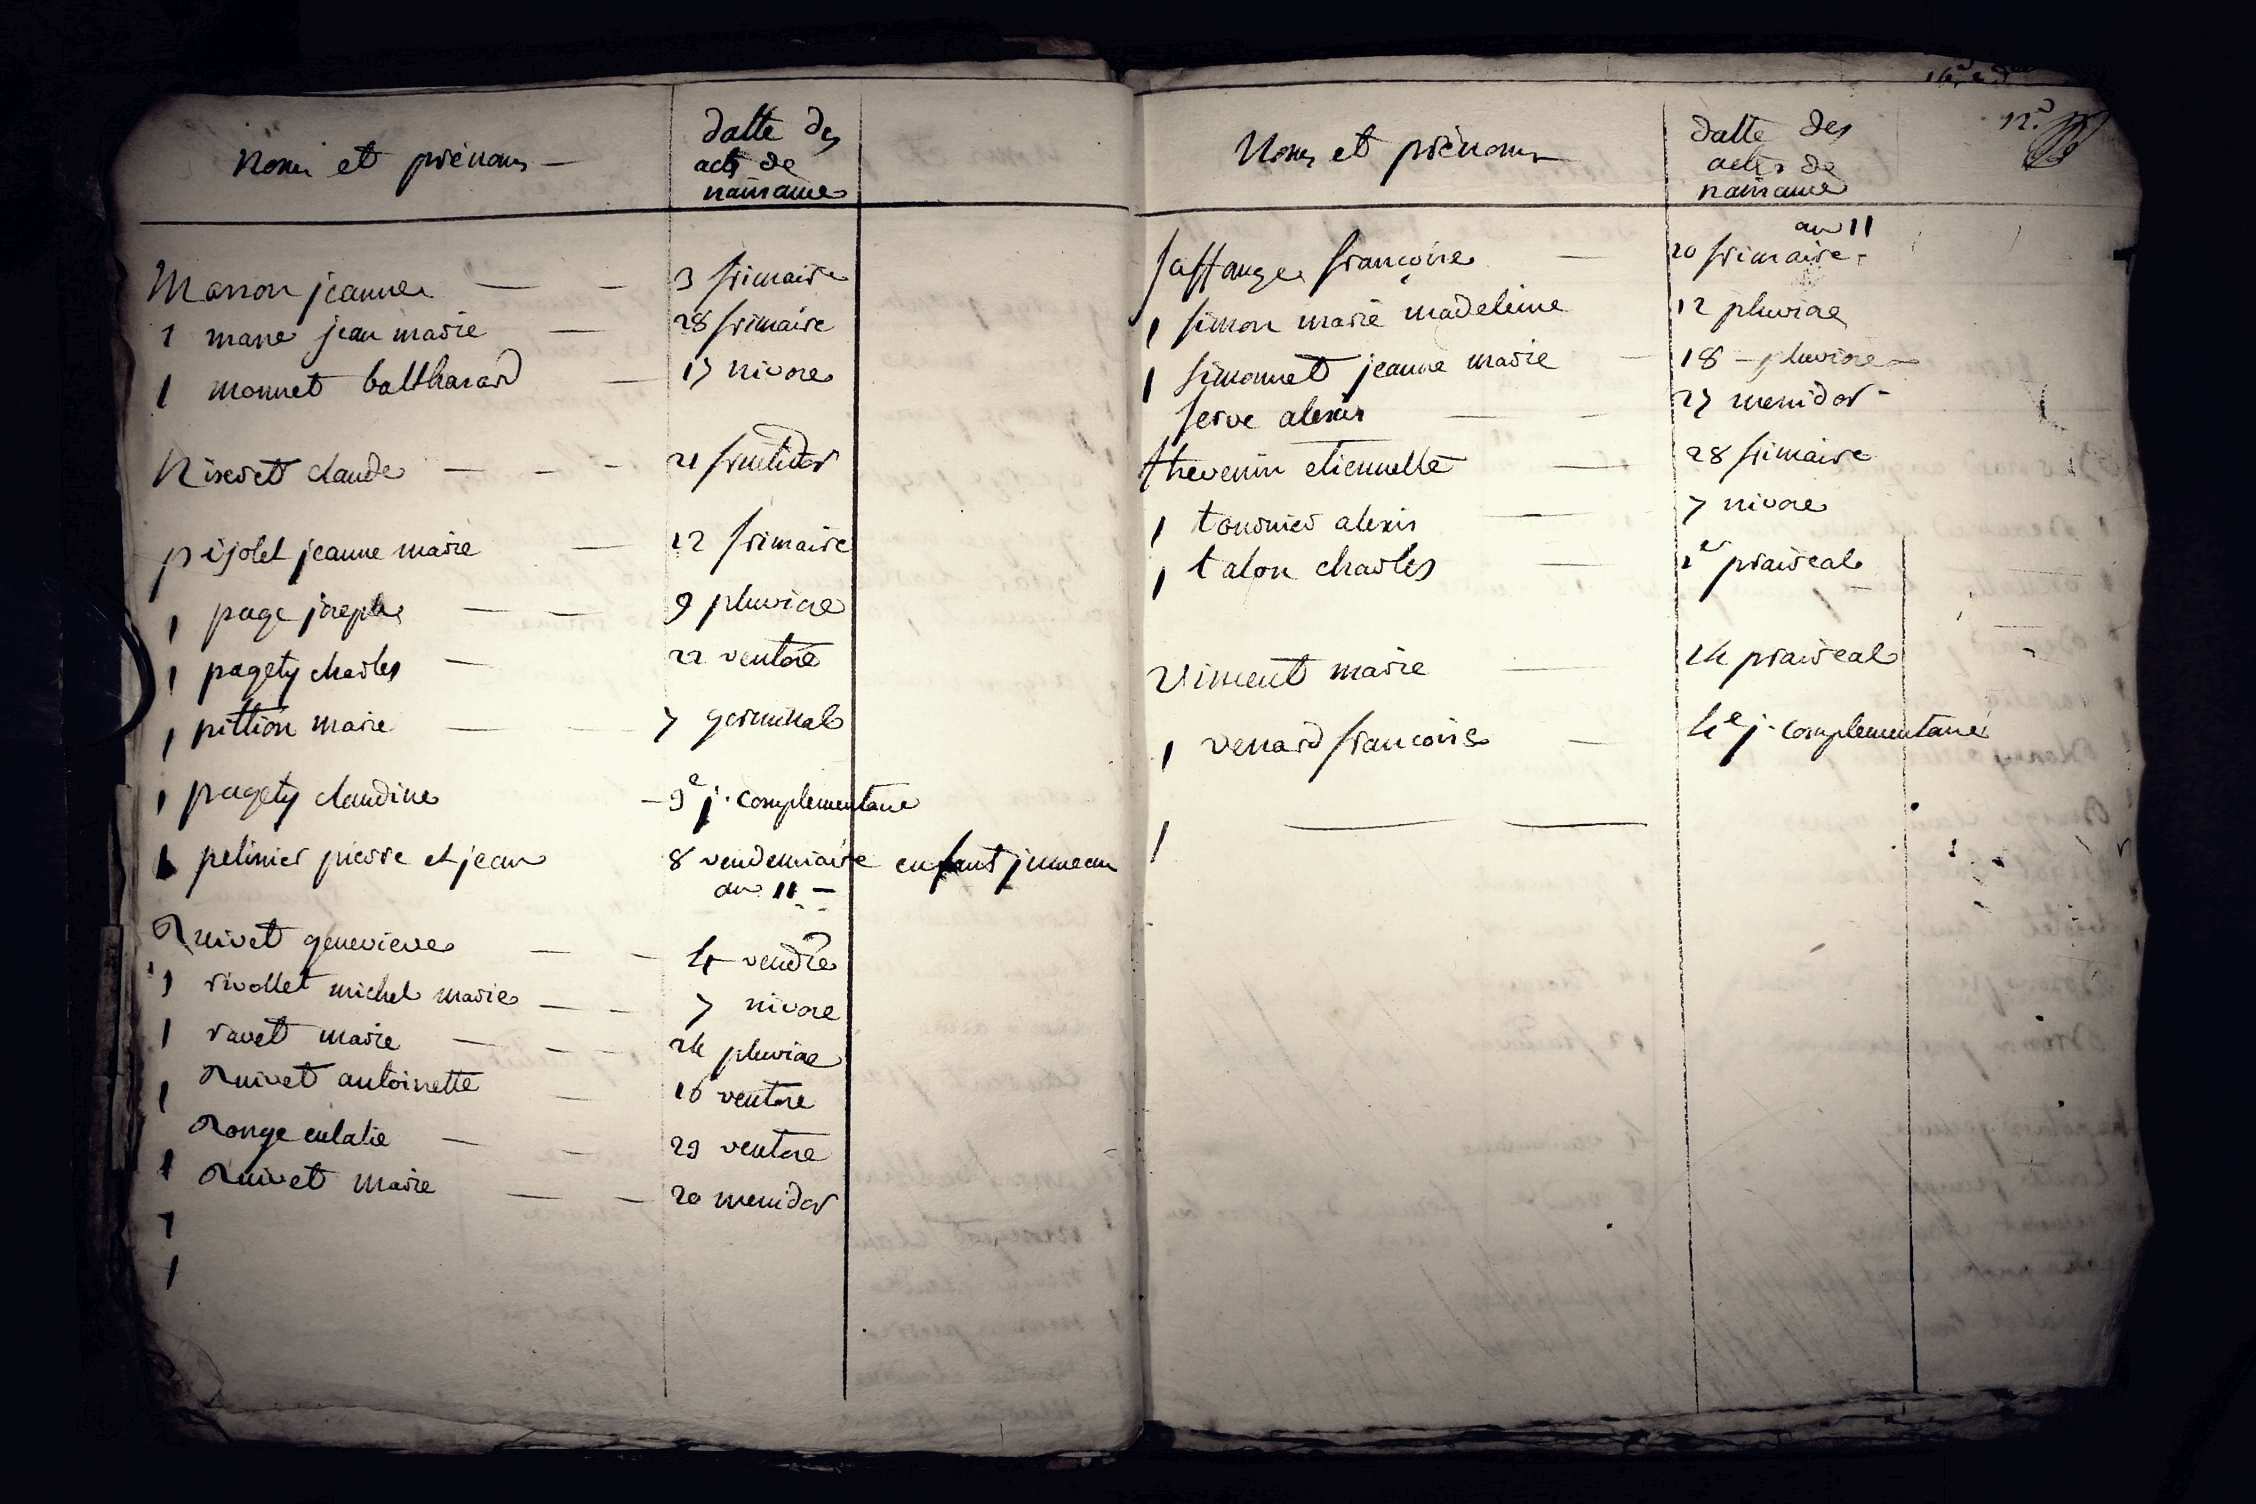 Noms et prénoms —
datte des
acts de
naissance
Masson jeanne — — 3 frimaire
1 marie jean marie — 28 frimaire
1 monnet balthasard — 17 nivose
Niseret claude — — — 21 fructidor
pijolet jeanne marie — 12 frimaire
1 page joseph — — 9 pluviose
1 pagety charles — 22 ventose
1 pittion marie — — 7 germinal
1 pagety claudine — 3e j. complementaire
1 pelinier pierre et jean 8 vendemiaire enfant jumeau
an 11 —
Ruivet genevieve — — 4 vendre
1 rivollet michel marie — — 7 nivose
1 ravet marie — — — 24 pluviose
1 Ruivet antoinette — 16 ventose
Ronge eulalie — — 29 ventose
1 Ruivet marie — — 20 messidor
1
1
Noms et prénoms
datte des
actes de
naissance
n.
an 11
saffange françoise — 20 frimaire.
1 simon marie madeleine 12 pluviose
1 simonnet jeanne marie — 18 – pluviose
serve alexis — — 27 messidor -
thevenin etiennette — 28 frimaire
1 tournier alexis — 7 nivose
1 talon charles — 1er praireal
Viment marie — 14 prairéal
1 venard françoise — 4e j. complementaire
1 — —